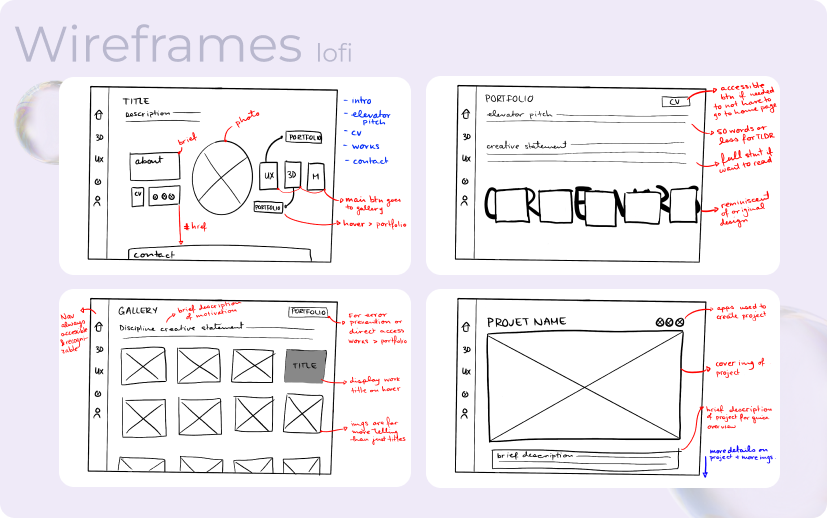 Wireframes lofi
TITLE
Description
photo
brief
about
CV
#href
contact
PORTFOLIO
UX
3D
M
PORTFOLIO
main btn goes
to gallery
hover > portfolio
- intro
- elevator
pitch
- cv
- works
- contact
3D
UX
PORTFOLIO
CV
elevator pitch
creative statement
accessible
btn if needed
to not have to
go to home page
50 words or
less for TLDR
full stmt if
want to read
reminiscent
of original
design
3D
UX
Nav
always
accessible
& recogni
zable
GALLERY
brief description
of motivation
PORTFOLIO
Discipline creative statement
TITLE
For error
prevention or
direct access
works > portfolio
display work
title on hover
imgs are far
more telling
than just titles
3D
UX
PROJET NAME
apps used to
create project
cover img of
project
brief description
of project for quick
overview
brief description
more details on
project + more imgs.
3D
UX